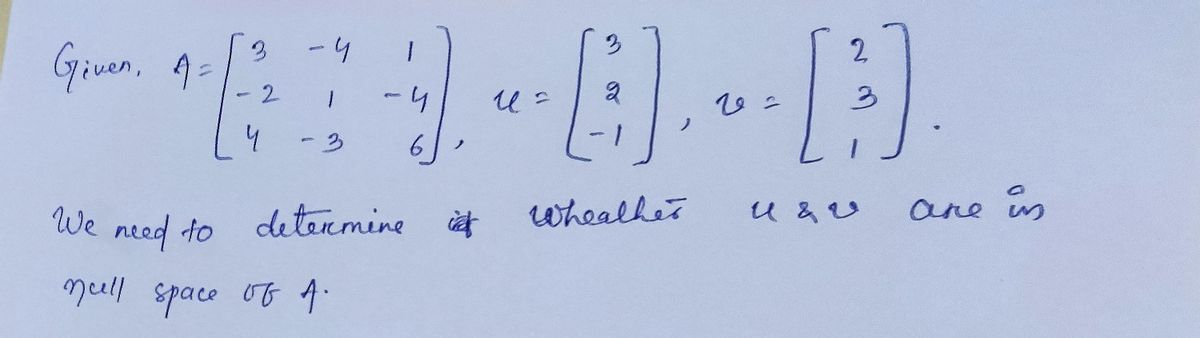 Given, A = [3 -4 1; -2 1 -4; 4 -3 6], u = [3; 2; -1], v = [2; 3; 1].
We need to determine wheather u & v are in
null space of A.